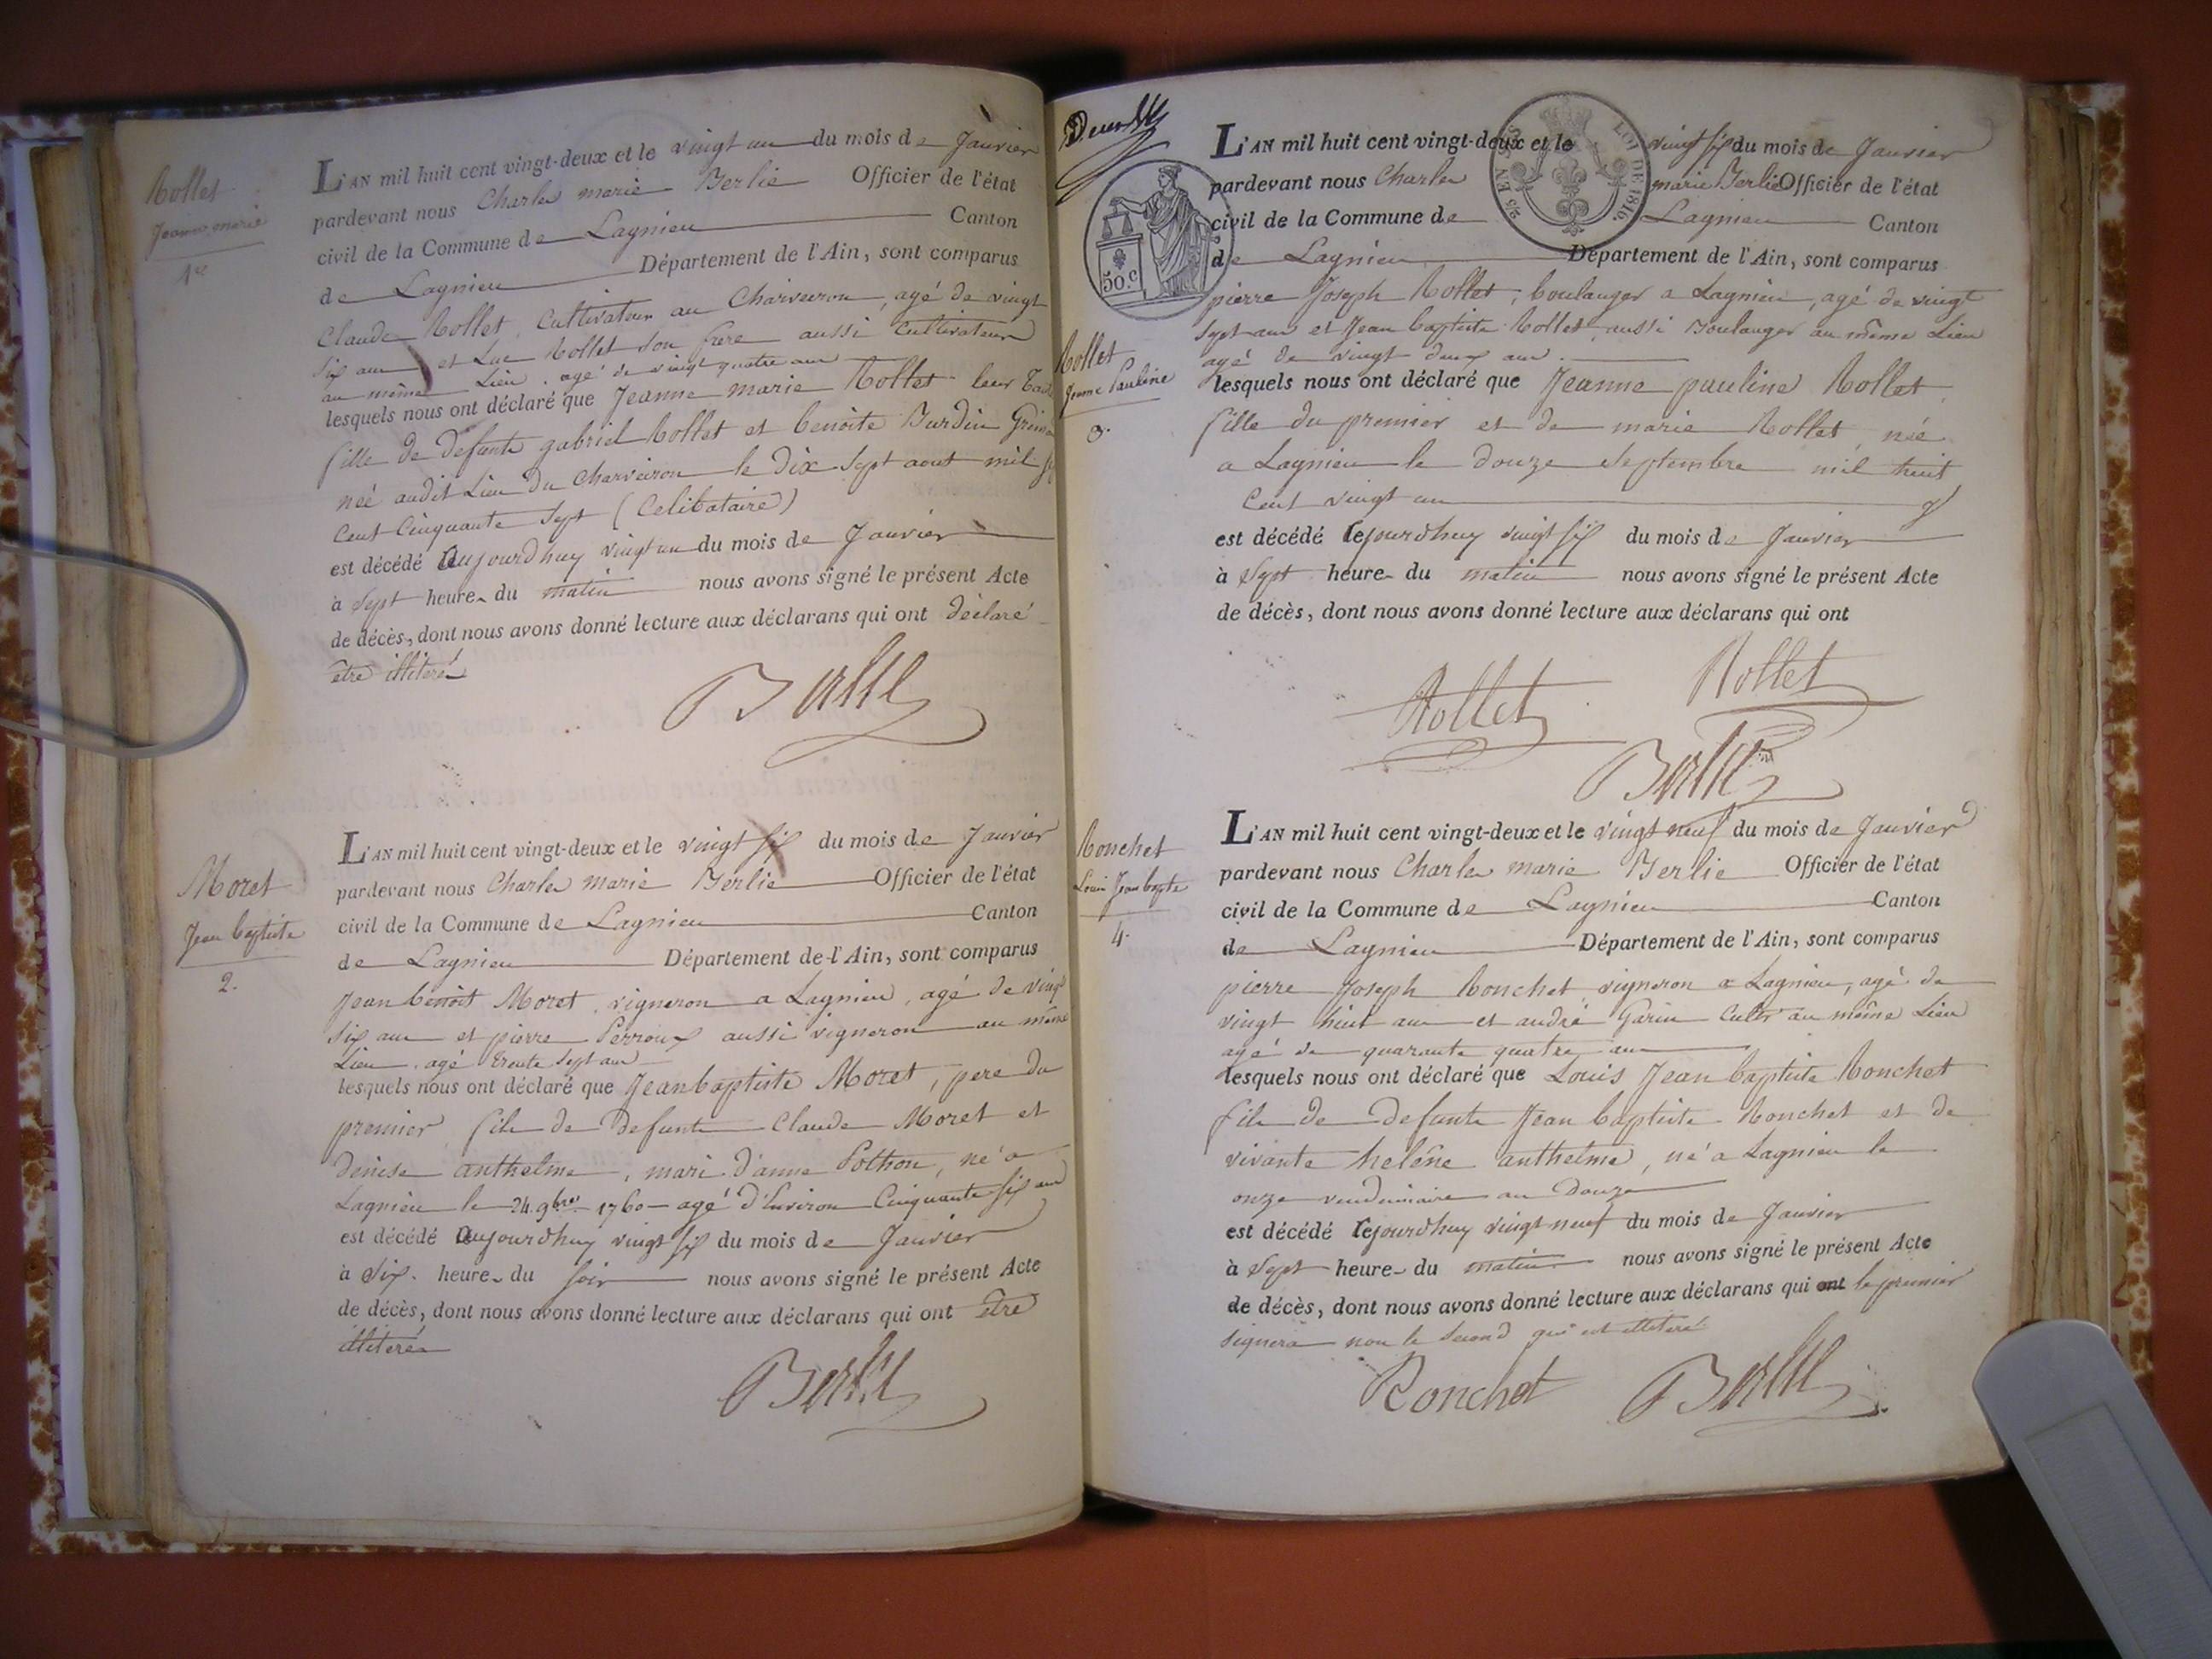 Rollet
Jeanne marie
1re
L'AN mil huit cent vingt-deux et le vingt un du mois de Janvier
pardevant nous Charles marie Berlie Officier de l'état
civil de la Commune de Lagnieu Canton
de Lagnieu Département de l'Ain, sont comparus
Claude Rollet, Cultivateur au Charveyron, agé de vingt
six ans et Luc Rollet son frere aussi Cultivateur
au même Lieu, agé de vingt quatre ans
lesquels nous ont déclaré que Jeanne marie Rollet leur
fille de defunts gabriel Rollet et benoite Burdin
née audit Lieu du Charveiron le dix Sept aout mil
Cent Cinquante Sept (Celibataire)
est décédé aujourdhuy vingt un du mois de Janvier
à Sept heures du matin nous avons signé le présent Acte
de décès, dont nous avons donné lecture aux déclarans qui ont déclaré
être illiterés
Berlie
Moret
Jean baptiste
2.
L'AN mil huit cent vingt-deux et le vingt six du mois de Janvier
pardevant nous Charles marie Berlie Officier de l'état
civil de la Commune de Lagnieu Canton
de Lagnieu Département de l'Ain, sont comparus
Jean benoit Moret, vigneron a Lagnieu, agé de vingt
six ans et pierre Perroux aussi vigneron au même
Lieu, agé trente sept ans
lesquels nous ont déclaré que Jean baptiste Moret, pere du
premier fils de defunts Claude Moret et
denise anthelme, mari d'anne Pothon, né a
Lagnieu le 24 9bre 1760 agé d'Environ Cinquante six ans
est décédé aujourdhuy vingt six du mois de Janvier
à six heures du soir nous avons signé le présent Acte
de décès, dont nous avons donné lecture aux déclarans qui ont être
illiterés
Berlie
EN SUS
LOI DE 1816.
50.c
Rollet
Jeanne Pauline
3.
L'AN mil huit cent vingt-deux et le vingt six du mois de Janvier
pardevant nous Charles marie Berlie Officier de l'état
civil de la Commune de Lagnieu Canton
de Lagnieu Département de l'Ain, sont comparus
pierre Joseph Rollet, boulanger a Lagnieu, agé de vingt
sept ans et Jean baptiste Rollet aussi boulanger au même Lieu
agé de vingt deux ans.
lesquels nous ont déclaré que Jeanne pauline Rollet,
fille du premier et de marie Rollet, née
a Lagnieu le douze Septembre mil huit
Cent vingt un
est décédé cejourdhuy vingt six du mois de Janvier
à Sept heures du matin nous avons signé le présent Acte
de décès, dont nous avons donné lecture aux déclarans qui ont
Rollet
Rollet
Berlie
Ronchet
Louis Jean bapte
4.
L'AN mil huit cent vingt-deux et le vingt neuf du mois de Janvier
pardevant nous Charles marie Berlie Officier de l'état
civil de la Commune de Lagnieu Canton
de Lagnieu Département de l'Ain, sont comparus
pierre Joseph Ronchet vigneron a Lagnieu, agé de
vingt huit ans et andré Garin Cultr au même Lieu
agé de quarante quatre ans
lesquels nous ont déclaré que Louis Jean baptiste Ronchet
fils de defunts Jean baptiste Ronchet et de
vivante heléne anthelme, né a Lagnieu le
onze vendemiaire an Douze
est décédé cejourdhuy vingt neuf du mois de Janvier
à Sept heures du matin nous avons signé le présent Acte
de décès, dont nous avons donné lecture aux déclarans qui ont le premier
signera non le Second qui est illiteré
Ronchet Berlie